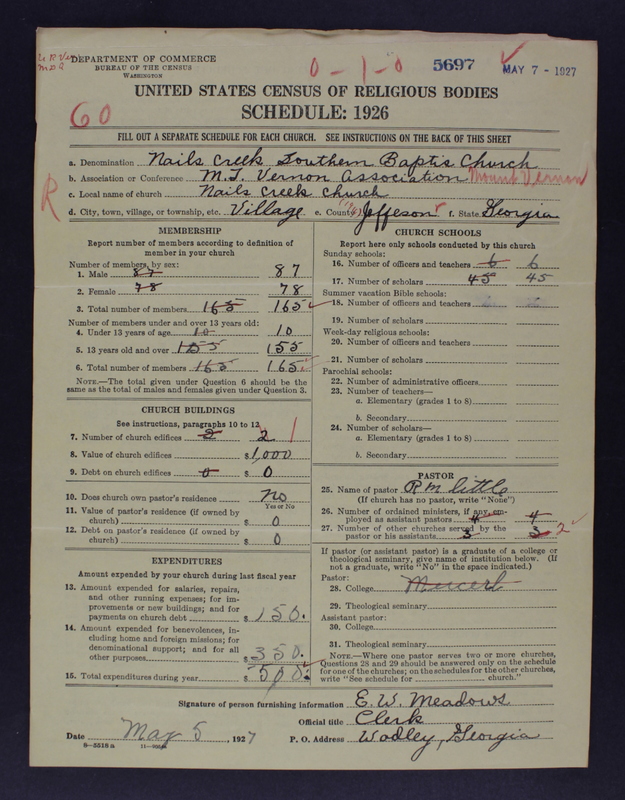 DEPARTMENT OF COMMERCE
BUREAU OF THE CENSUS
WASHINGTON
0-1-0
5697
MAY 7 - 1927
UNITED STATES CENSUS OF RELIGIOUS BODIES
60
SCHEDULE: 1926
FILL OUT A SEPARATE SCHEDULE FOR EACH CHURCH. SEE INSTRUCTIONS ON THE BACK OF THIS SHEET
a. Denomination Nails Creek Southern Baptis Church
b. Association or Conference M.T. Vernon Association Mount Vernon
R
c. Local name of church Nails Creek Church
d. City, town, village, or township, etc. Village e. County Jeffeson f. State Georgia
MEMBERSHIP
Report number of members according to definition of
member in your church
Number of members, by sex:
1. Male 87 87
2. Female 78 78
3. Total number of members 165 165
Number of members under and over 13 years old:
4. Under 13 years of age 10 10
5. 13 years old and over 155 155
6. Total number of members 165 165
NOTE.—The total given under Question 6 should be
same as the total of males and females given under Question 3.
CHURCH BUILDINGS
See instructions, paragraphs 10 to 12
7. Number of church edifices 2 2 1
8. Value of church edifices $1,000
9. Debt on church edifices 0 $ 0
10. Does church own pastor's residence No
Yes or No
11. Value of pastor's residence (if owned by
church) $ 0
12. Debt on pastor's residence (if owned by
church) $ 0
EXPENDITURES
Amount expended by your church during last fiscal year
13. Amount expended for salaries, repairs,
and other running expenses; for im-
provements or new buildings; and for
payments on church debt $ 150.
14. Amount expended for benevolences, in-
cluding home and foreign missions; for
denominational support; and for all
other purposes $ 350.
15. Total expenditures during year $ 500.
CHURCH SCHOOLS
Report here only schools conducted by this church
Sunday schools:
16. Number of officers and teachers 6 6
17. Number of scholars 45 45
Summer vacation Bible schools:
18. Number of officers and teachers
19. Number of scholars
Week-day religious schools:
20. Number of officers and teachers
21. Number of scholars
Parochial schools:
22. Number of administrative officers
23. Number of teachers—
a. Elementary (grades 1 to 8)
b. Secondary
24. Number of scholars—
a. Elementary (grades 1 to 8)
b. Secondary
PASTOR
25. Name of pastor R M little
(If church has no pastor, write "None")
26. Number of ordained ministers, if any, em-
ployed as assistant pastors 4 4
27. Number of other churches served by the
pastor or his assistants 3 3 2
If pastor (or assistant pastor) is a graduate of a college or
theological seminary, give name of institution below. (If
not a graduate, write "No" in the space indicated.)
Pastor:
28. College
29. Theological seminary
Assistant pastor:
30. College
31. Theological seminary
NOTE.—Where one pastor serves two or more churches,
Questions 28 and 29 should be answered only on the schedule
for one of the churches; on the schedules for the other churches,
write "See schedule for church."
Signature of person furnishing information E. W. Meadows
Official title Clerk
Date May 5, 1927 P. O. Address Wadley, Georgia
8-5518a